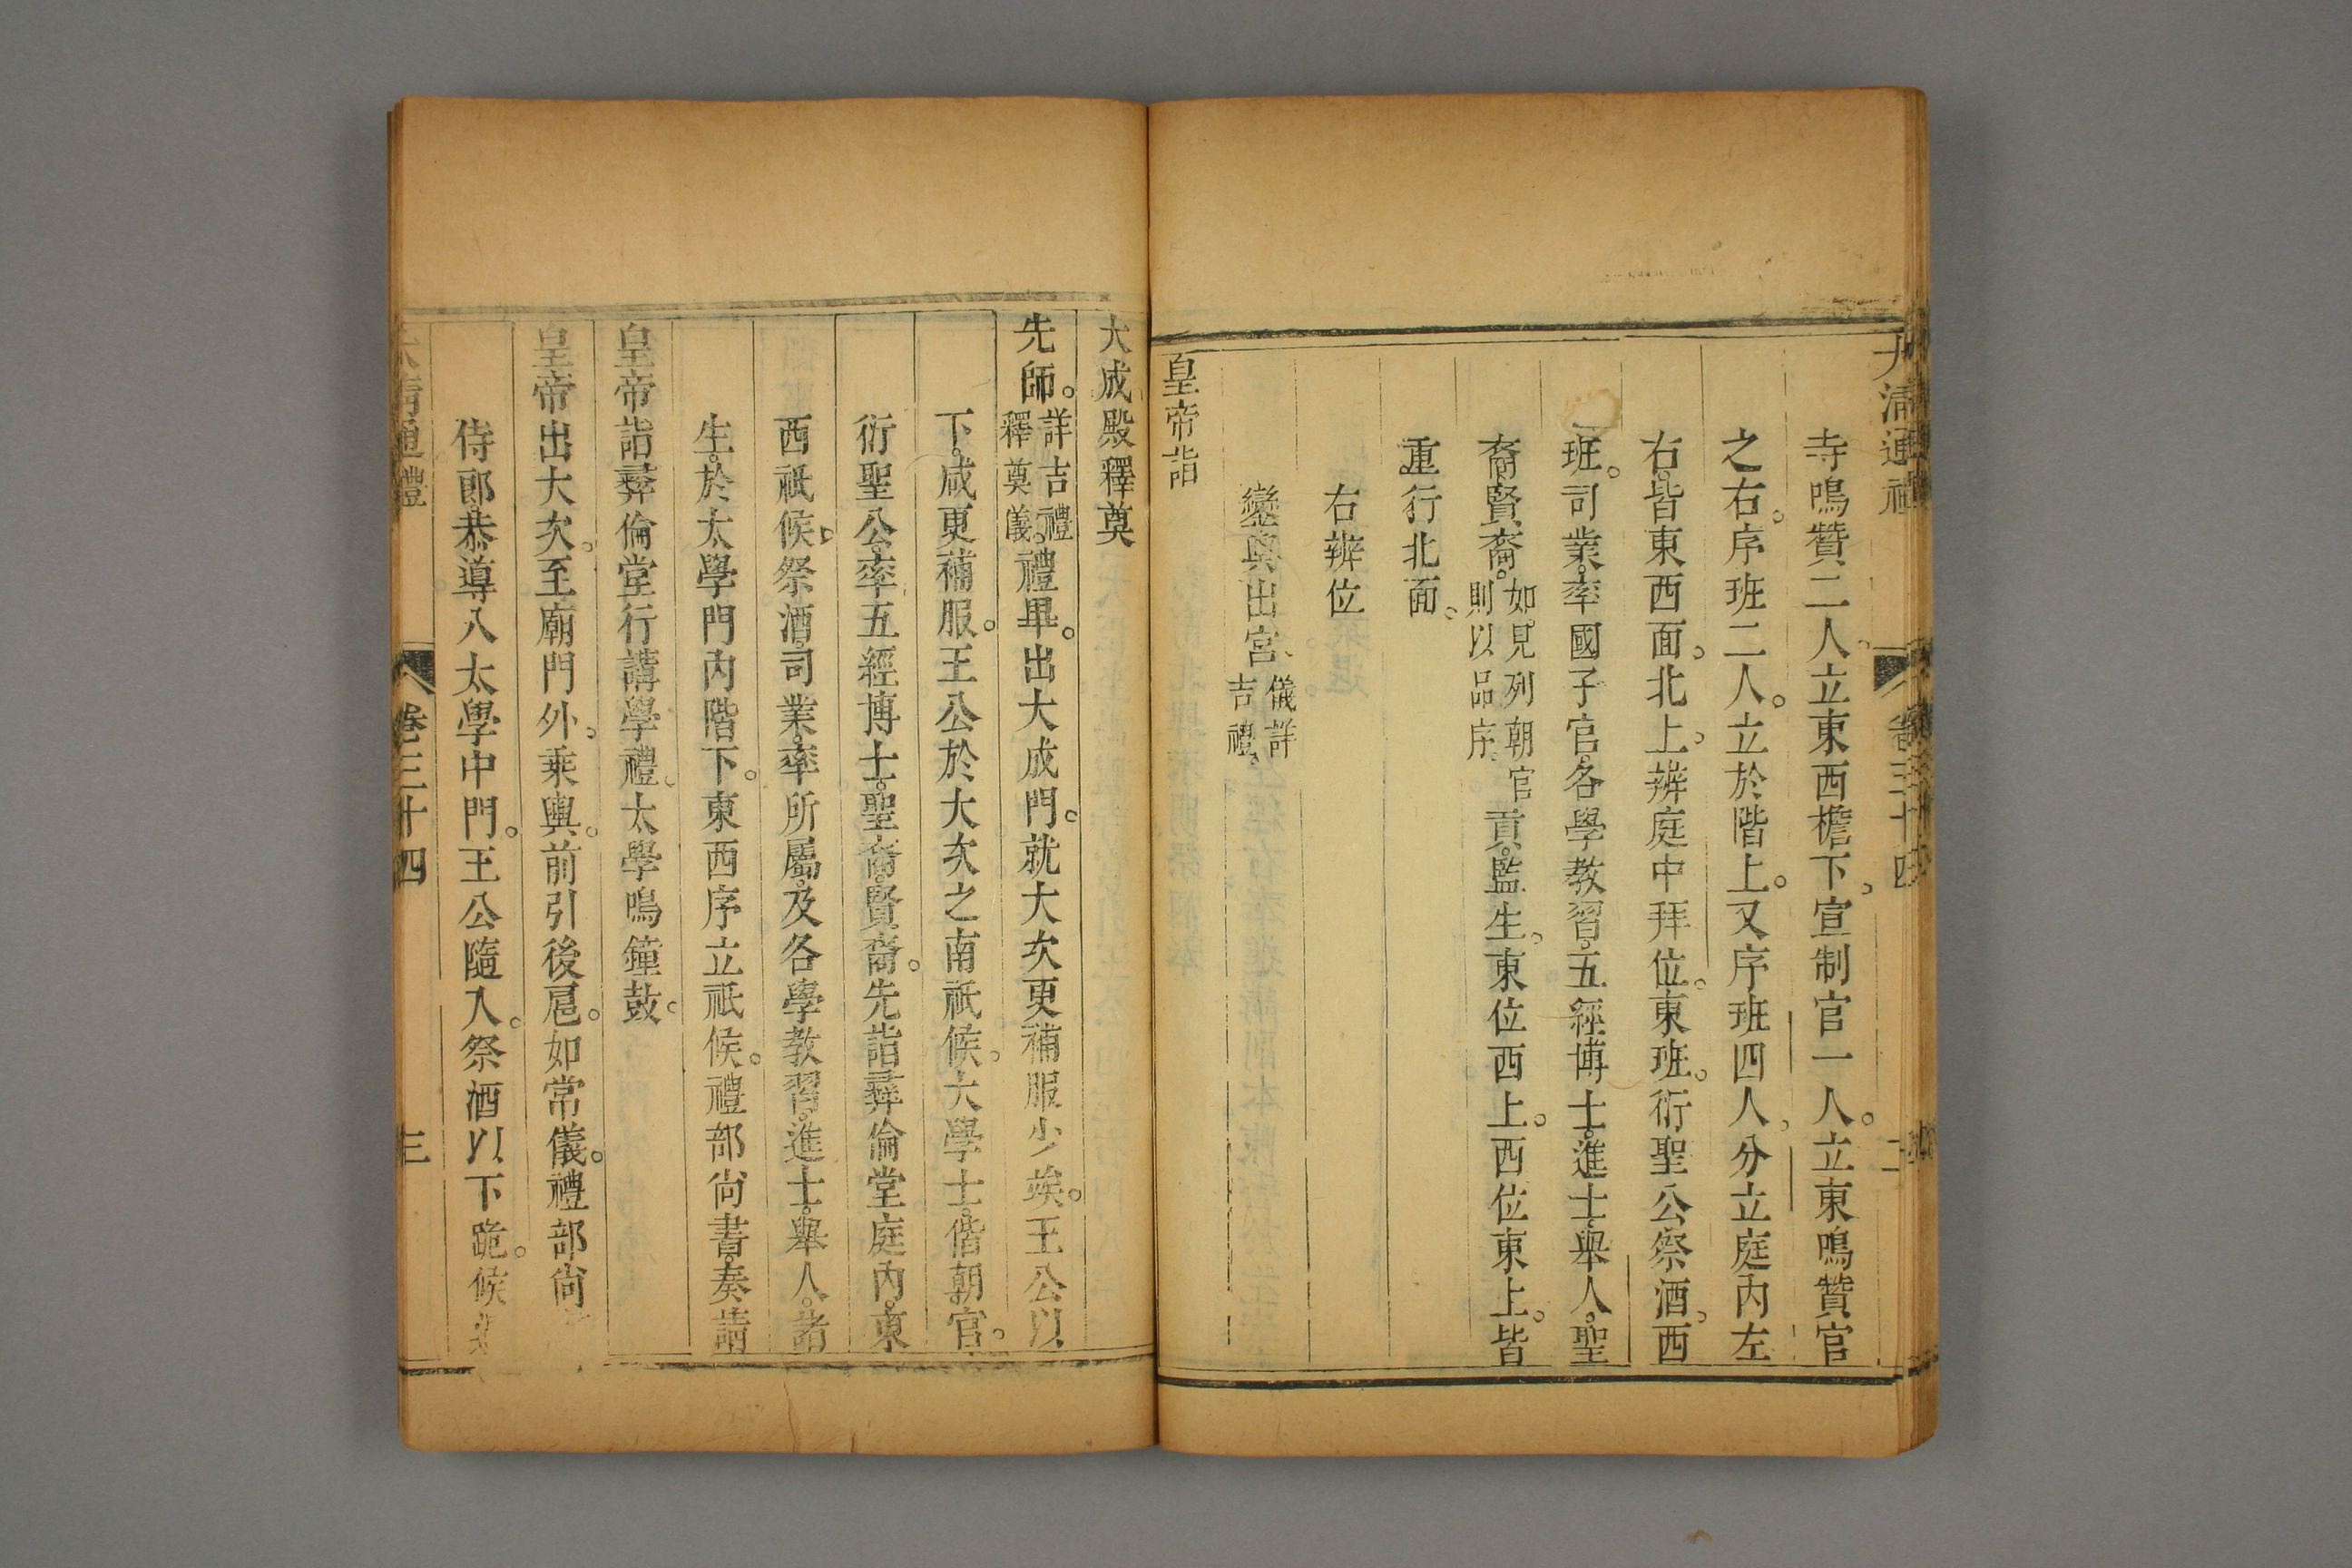 大清通禮 卷三十四 二
寺鳴贊二人立東西檐下。宣制官一人。立東鳴贊官
之右。序班二人。立於階上。又序班四人。分立庭內左
右。皆東西面。北上。辨庭中拜位。東班。衍聖公。祭酒。西
班。司業。率國子官。各學教習。五經博士。進士。舉人。聖
裔。賢裔。如見列朝官則以品序。貢監生。東位西上。西位東上。皆
重行北面。
右辨位
鑾輿出宮、儀詳吉禮。
皇帝詣
大成殿釋奠
先師。詳吉禮釋奠儀。禮畢。出大成門。就大次更補服少竢。王公以
下。咸更補服。王公於大次之南祇候。大學士。偕朝官。
衍聖公。率五經博士。聖裔。賢裔。先詣彞倫堂庭內。東
西祇候。祭酒司業。率所屬。及各學教習。進士。舉人。諸
生。於太學門內階下。東西序立祇候。禮部尙書。奏請
皇帝詣彞倫堂行講學禮。太學鳴鐘鼓。
皇帝出大次。至廟門外。乘輿。前引後扈。如常儀。禮部尙
侍郎。恭導入太學中門。王公隨入。祭酒以下跪。候
大清通禮 卷三十四 三